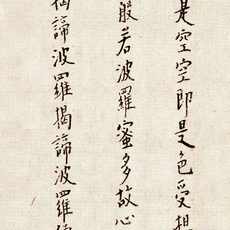 是空空即是色受想
般若波羅蜜多故心
揭諦波羅揭諦波羅僧